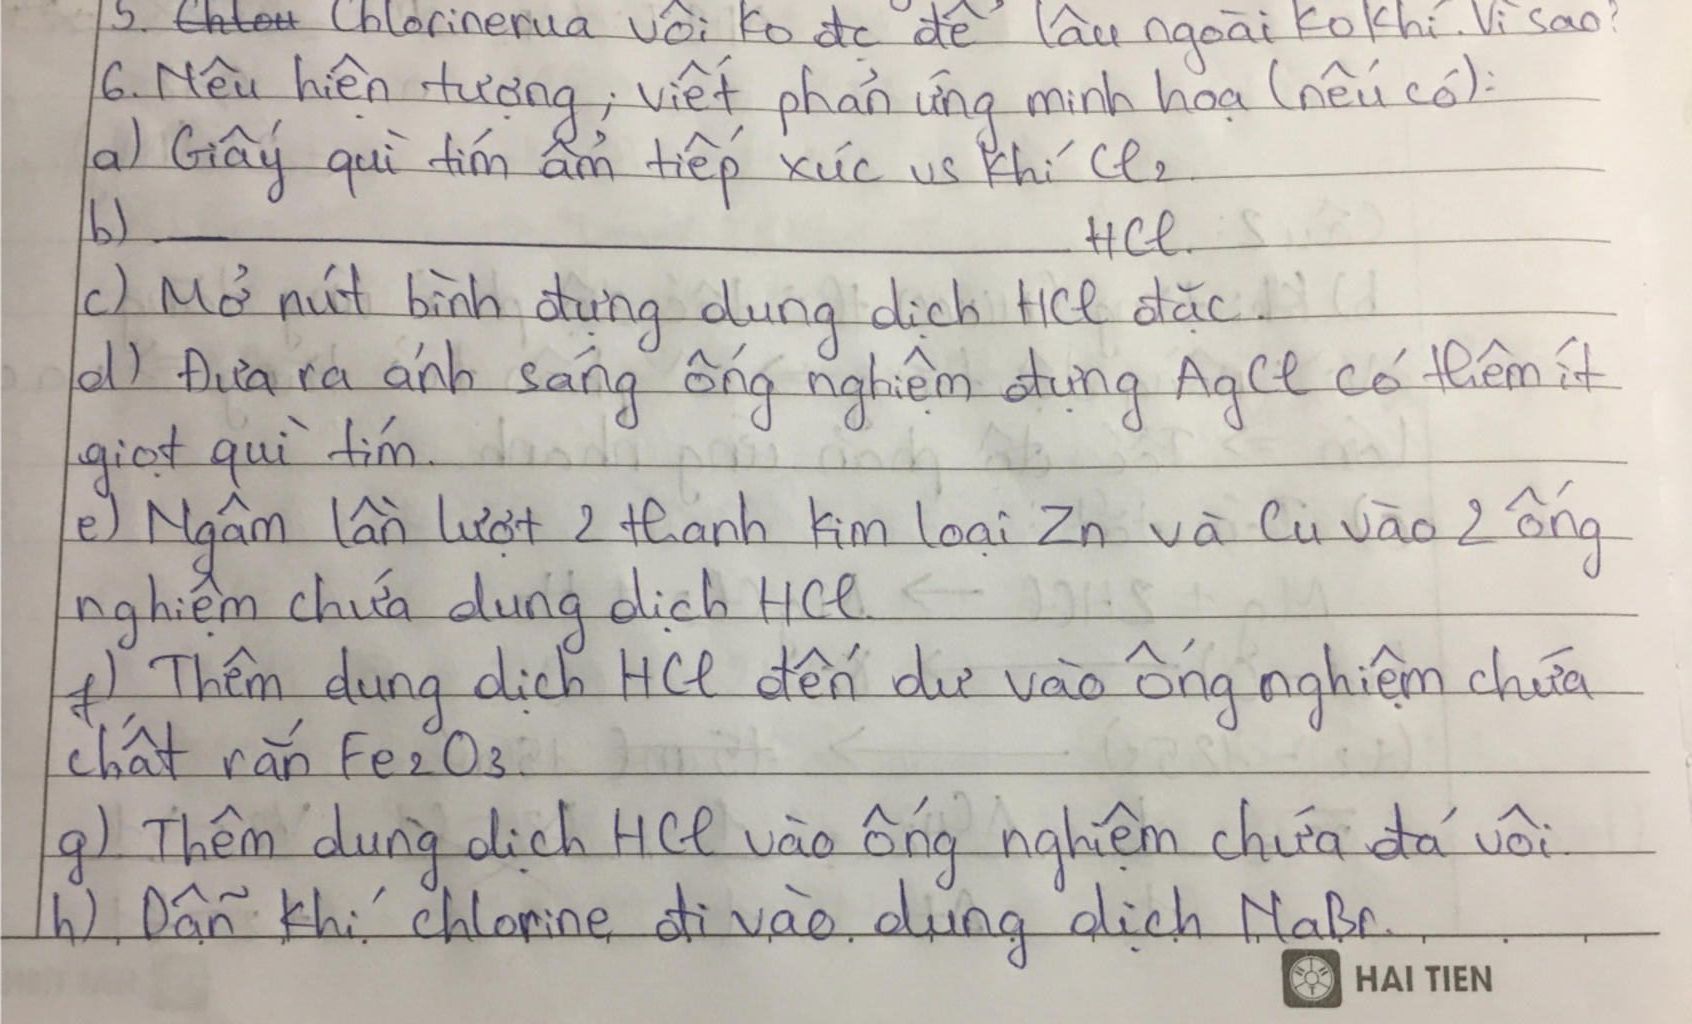 5. Chlorinerua vôi ko đc để lâu ngoài ko khí. Vì sao?
6. Nêu hiện tượng, viết phản ứng minh hoạ (nếu có):
a) Giấy quì tím ẩm tiếp xúc vs khí Cl2
b) ____________ HCl.
c) Mở nút bình đựng dung dịch HCl đặc.
d) Đưa ra ánh sáng ống nghiệm đựng AgCl có thêm ít
giọt quì tím.
e) Ngâm lần lượt 2 thanh kim loại Zn và Cu vào 2 ống
nghiệm chứa dung dịch HCl.
f) Thêm dung dịch HCl đến dư vào ống nghiệm chứa
chất rắn Fe2O3.
g) Thêm dung dịch HCl vào ống nghiệm chứa đá vôi.
h) Dẫn khí chlorine đi vào dung dịch NaBr.
HAI TIEN